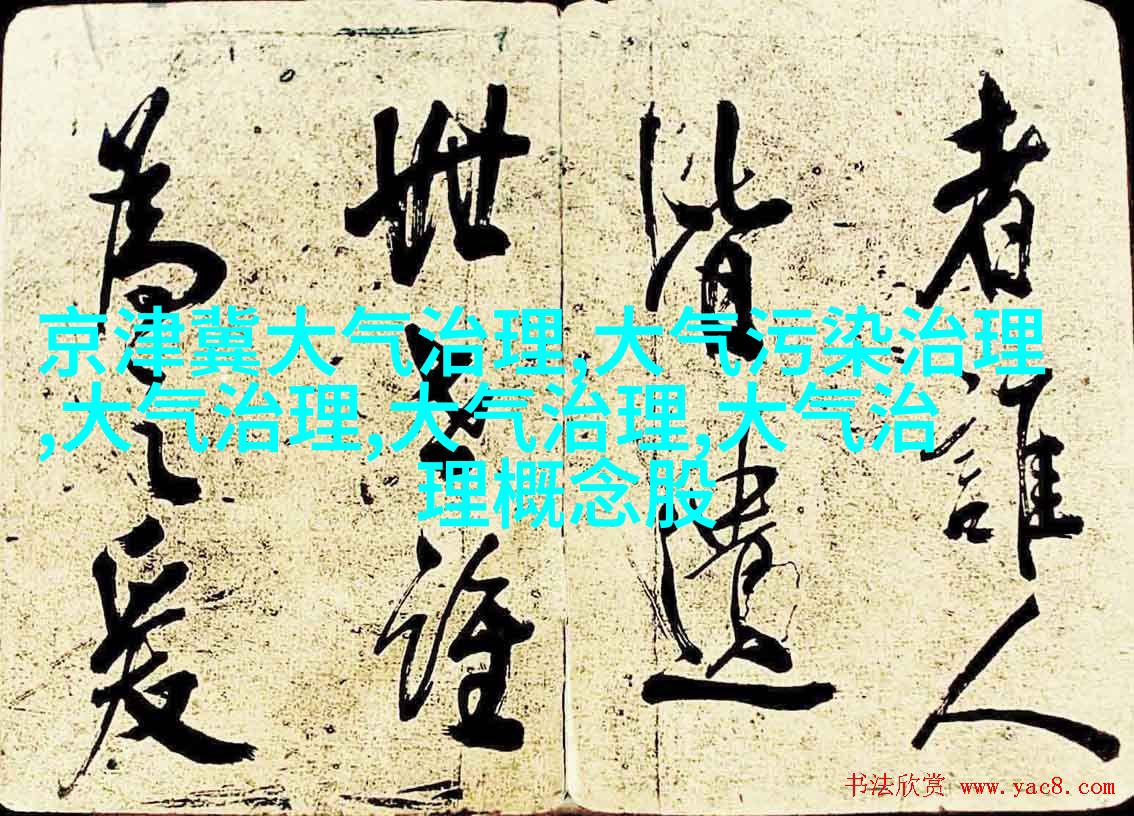 者誰人
皆遣
世上誰
為之爰
京津冀大气治理,大气污染治理
,大气治理,大气治理,大气治
理概念股
书法欣赏 www.yac8.com